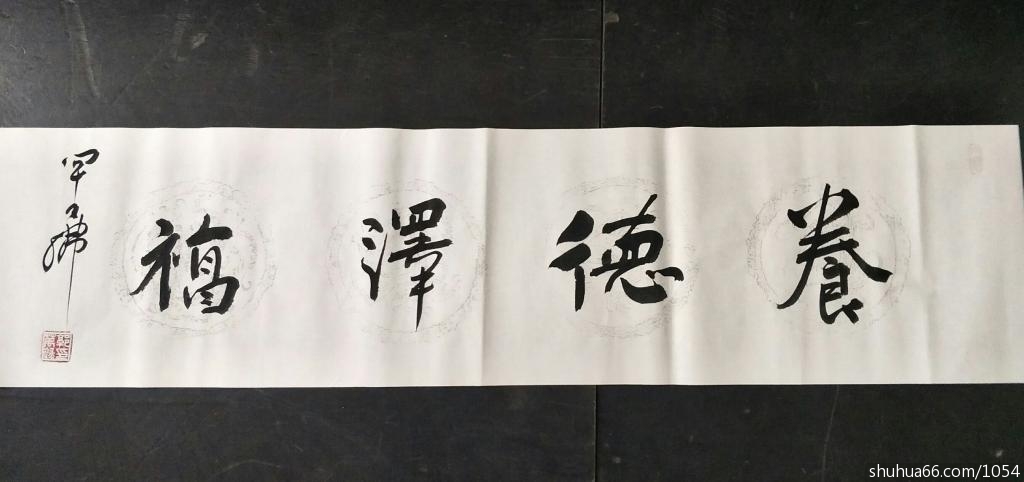 養德澤福
shuhua66.com/1054